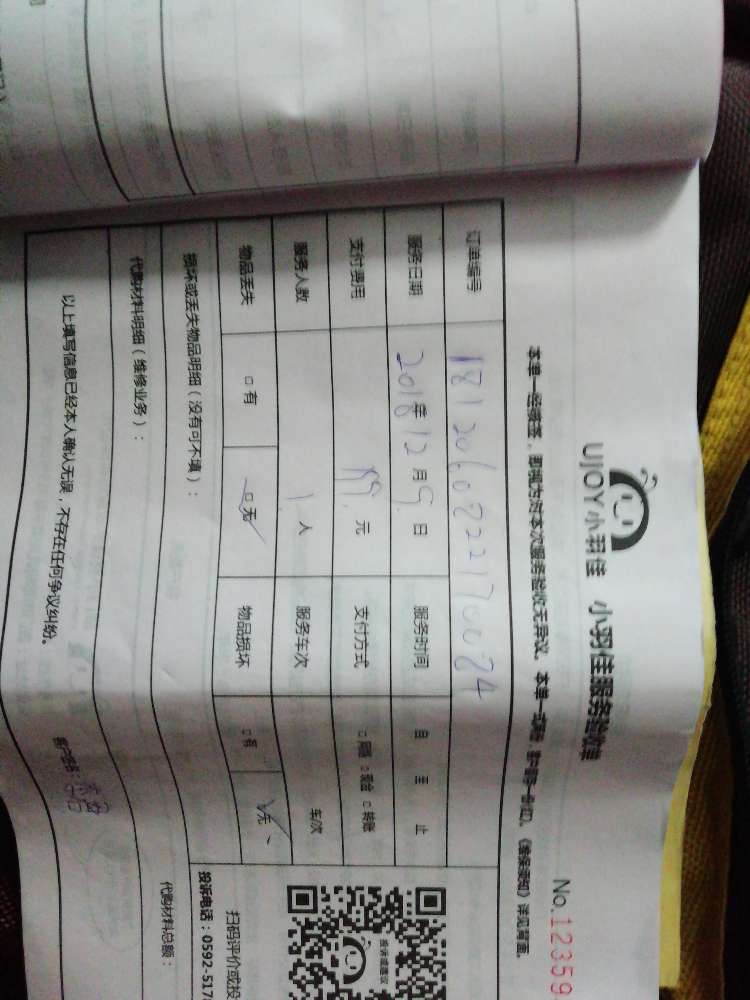 UJOY小羽佳 小羽佳服务验收单
No.12359
本单一经接签,即视为对本次服务验收无异议。本单一式两份,客户留存一份(红)。《维保须知》详见背面。
订单编号 1812060822170024
服务日期 2018年12月9日 服务时间 自 至 止
支付费用 元 支付方式 □网银 □现金 □转账
服务人数 1人 服务车次 车次
物品丢失 □有 □无 物品损坏 □有 □无
损坏或丢失物品明细(没有可不填):
代购材料明细(维修业务): 代购材料总额:
以上填写信息已经本人确认无误,不存在任何争议纠纷。
客户签名:
投诉建议
扫码评价或投
投诉电话:0592-517